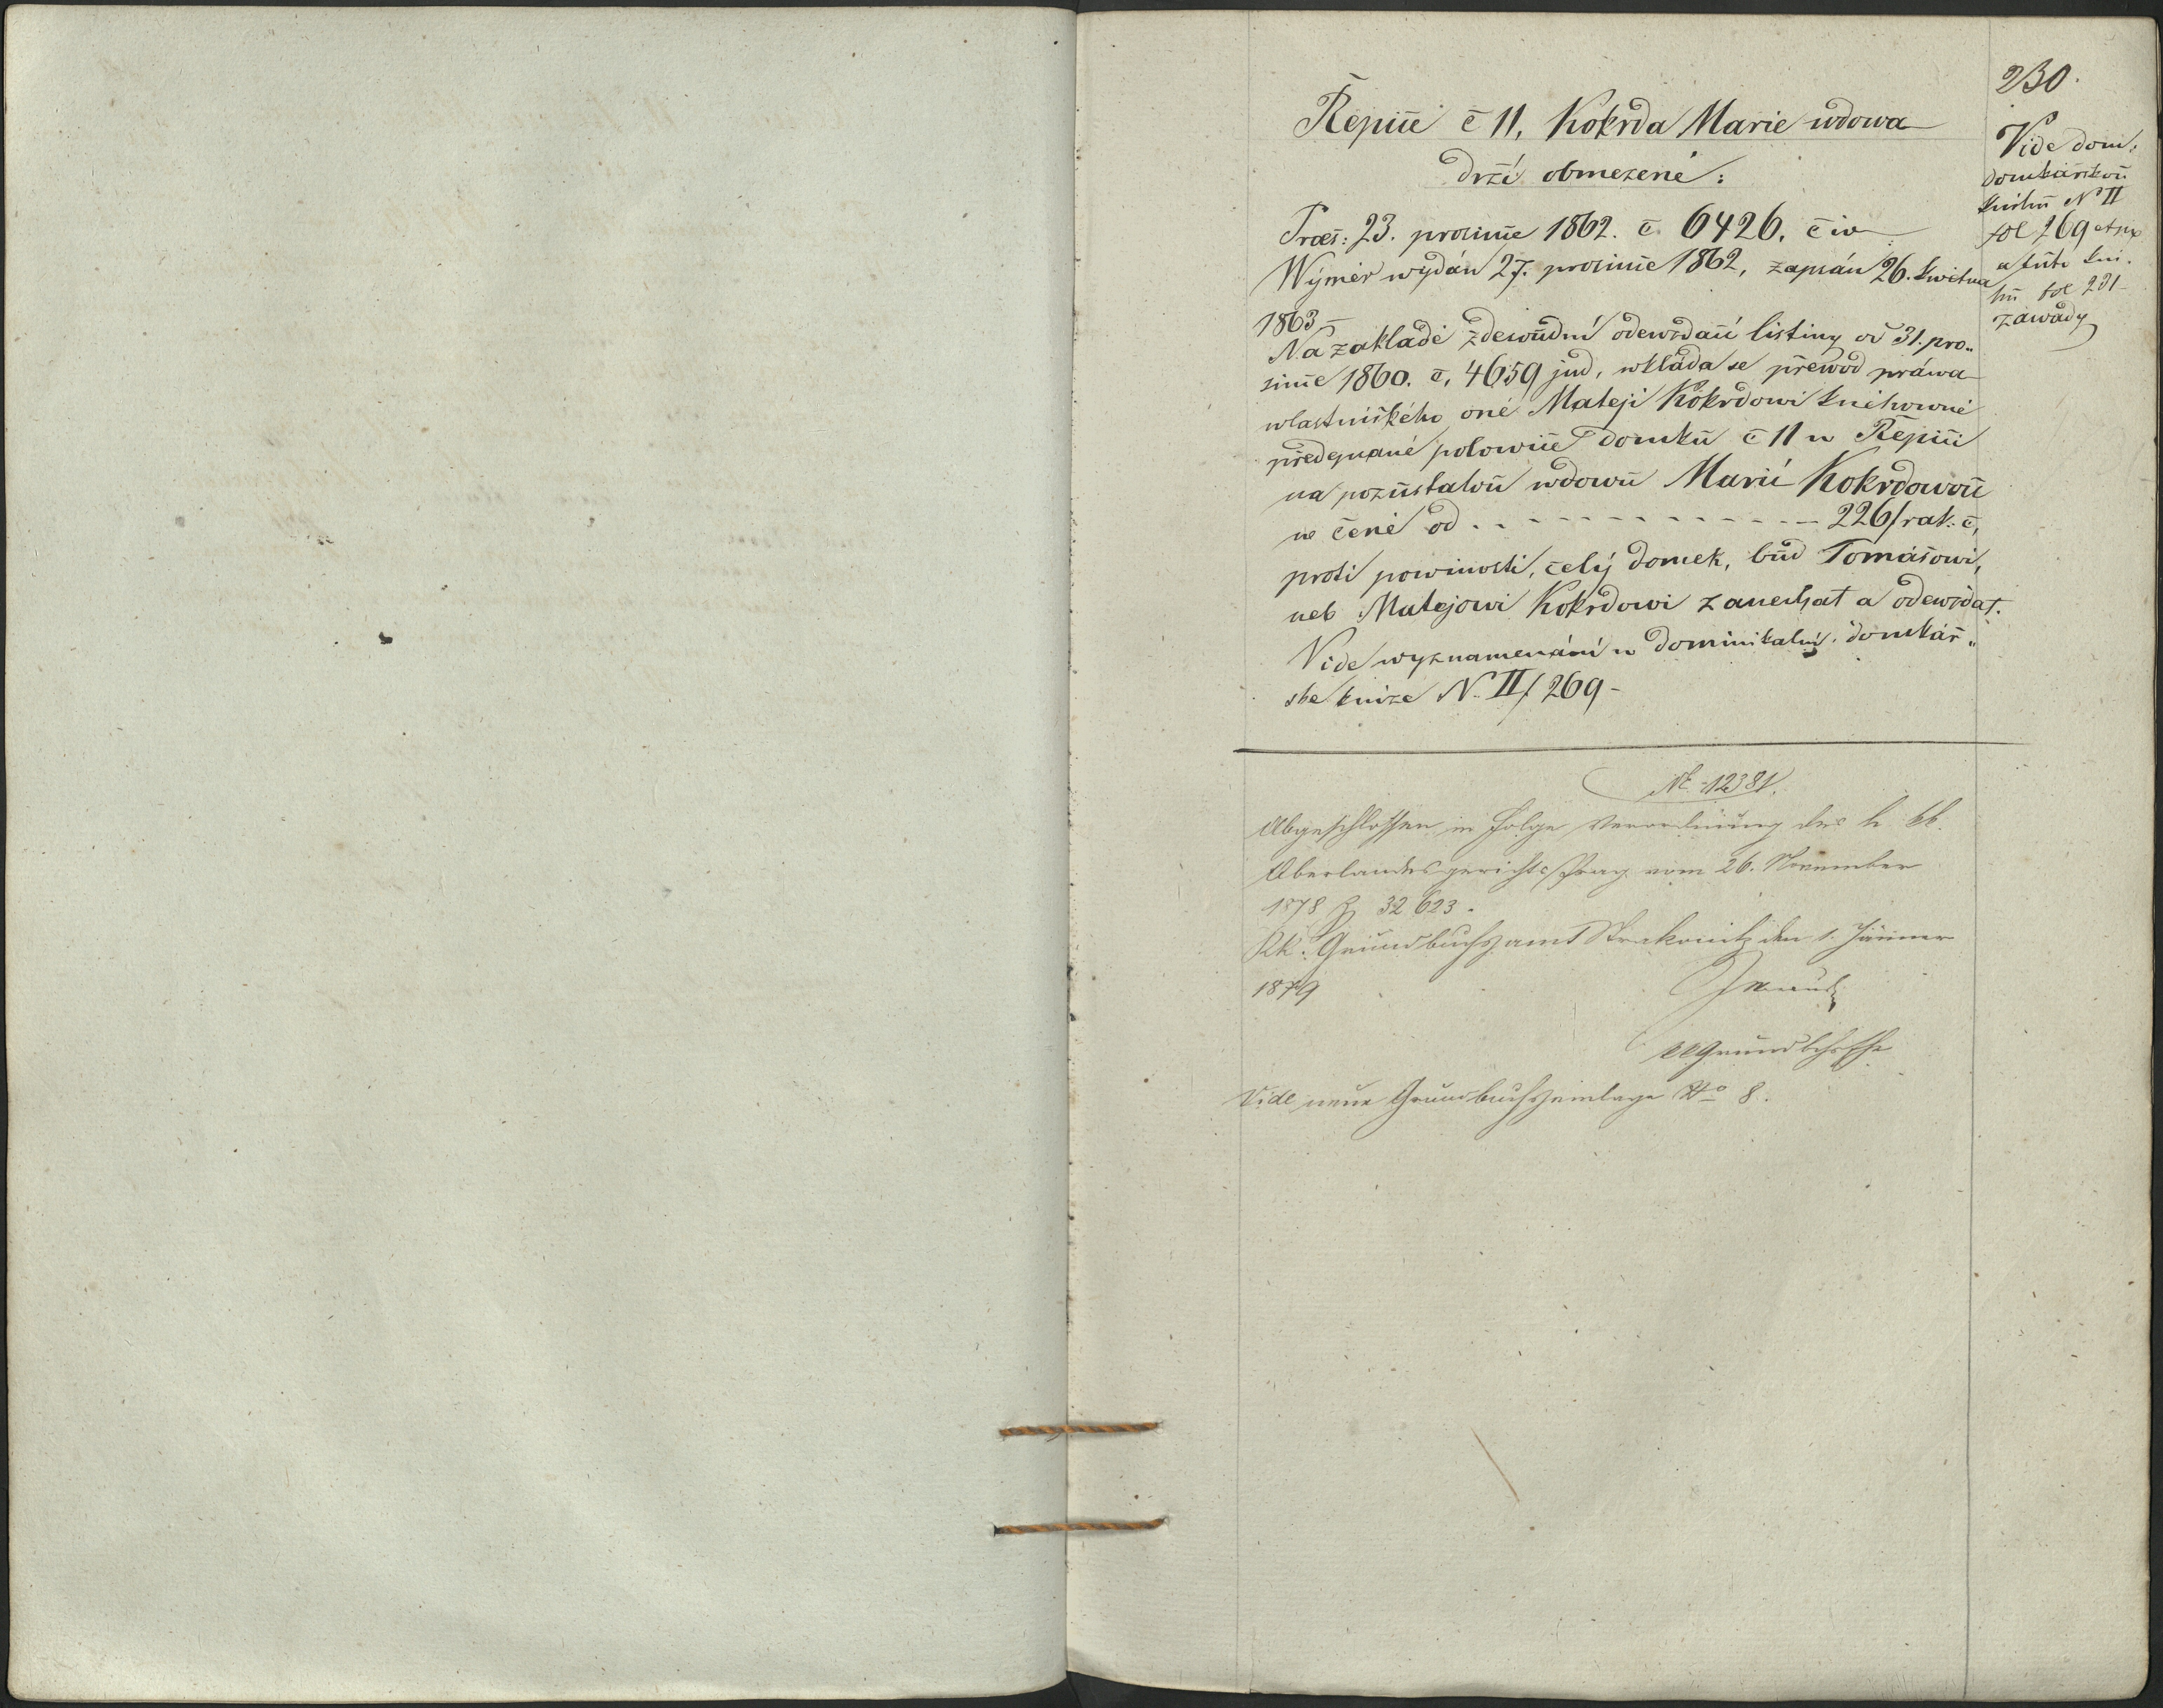 230.
Řepiče č 11, Kokrda Marie wdowa
drží obmezeně:
Praes: 23. prosince 1862. č. 6426. civ
Wýměr wydán 27. prosince 1862, zapsán 26. kwětna
1863 –
Na základě zdesoudní odewzdací listiny od 31. pro„
since 1860. č. 4659 jud, wkláda se přewod práwa
wlastnického oné Matěji Kokrdowi knihowně
předepsané polowice domku č 11 w Řepici
na pozůstalou wdowu Marii Kokrdowou
w ceně od . . - - - - - - - - - - - 226 f rak. č,
proti powinosti, celý domek, buď Tomášowi,
neb Matějowi Kokrdowi zanechat a odewzdat.
Vide wyznamenání w dominikální domkář„
ske knize N. II f 269 –
Vide dom:
domkářskou
knihu N II
fol 269
a tuto kni.
hu fol 231
záwady
NE 12381.
Abgeschlossen in Folge Verordnung des h. kk.
Oberlandesgerichts Prag vom 26. November
1878 Z 32623.
KK. Grundbuchsamt Strakonitz den 1. Jänner
1879
Vide neue Grundbuchseinlage No 8.